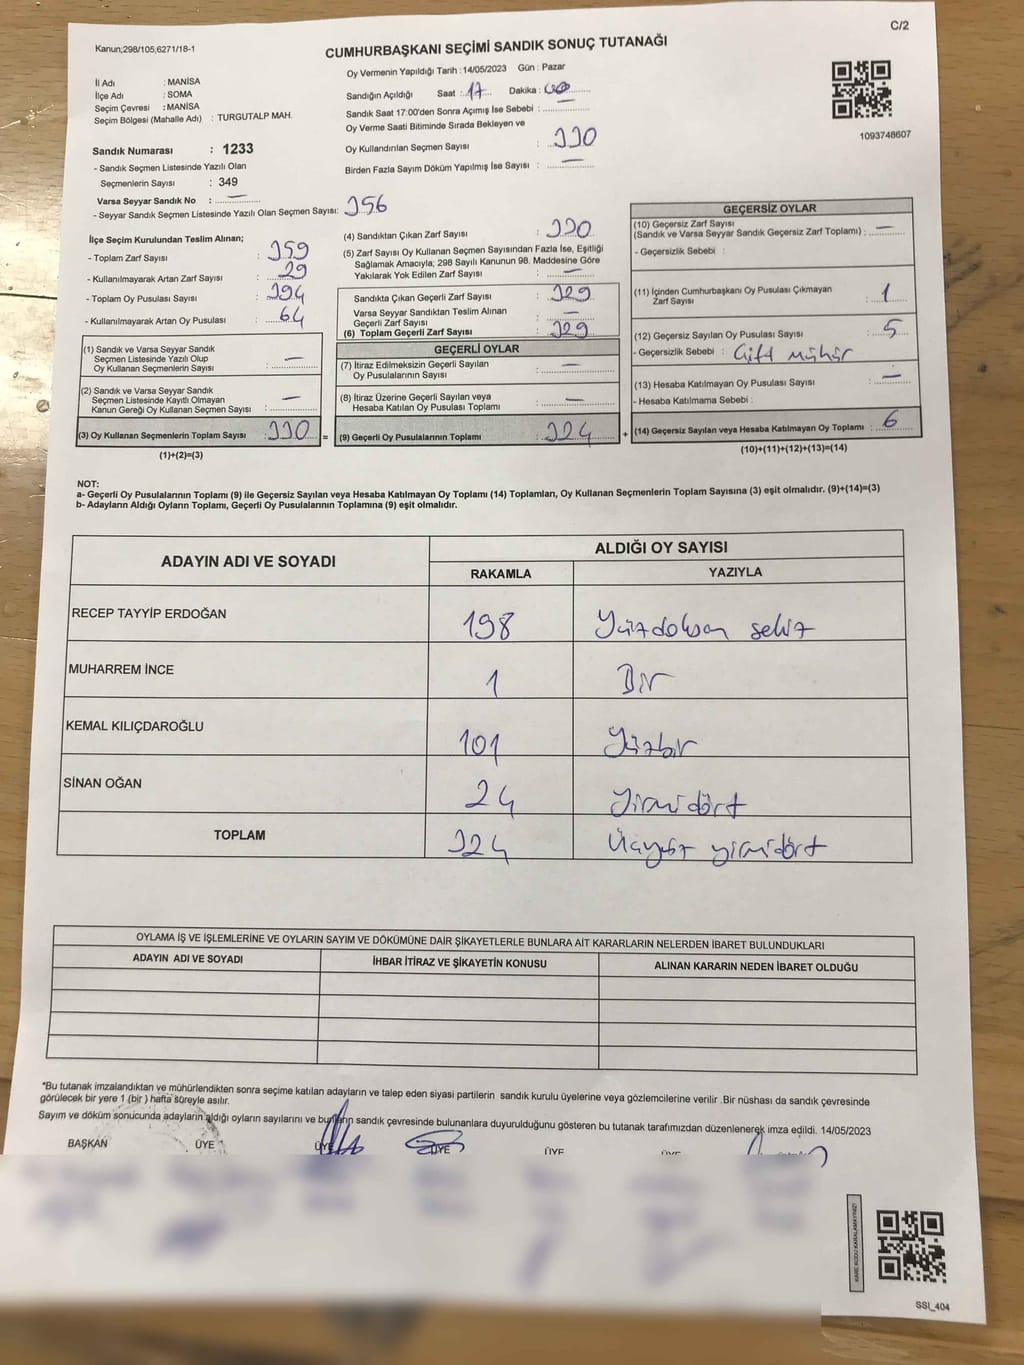 C/2
Kanun;298/105,6271/18-1
CUMHURBAŞKANI SEÇİMİ SANDIK SONUÇ TUTANAĞI
İl Adı : MANİSA
İlçe Adı : SOMA
Seçim Çevresi : MANİSA
Seçim Bölgesi (Mahalle Adı) : TURGUTALP MAH.
Oy Vermenin Yapıldığı Tarih : 14/05/2023 Gün : Pazar
Sandığın Açıldığı Saat : 17 Dakika : 00
Sandık Saat 17:00'den Sonra Açımış İse Sebebi : —
Oy Verme Saati Bitiminde Sırada Bekleyen ve
Oy Kullandırılan Seçmen Sayısı : 330
Birden Fazla Sayım Döküm Yapılmış İse Sayısı : —
1093748607
Sandık Numarası : 1233
- Sandık Seçmen Listesinde Yazılı Olan
Seçmenlerin Sayısı : 349
Varsa Seyyar Sandık No : —
- Seyyar Sandık Seçmen Listesinde Yazılı Olan Seçmen Sayısı: 356
İlçe Seçim Kurulundan Teslim Alınan;
- Toplam Zarf Sayısı : 359
- Kullanılmayarak Artan Zarf Sayısı : 29
- Toplam Oy Pusulası Sayısı : 394
- Kullanılmayarak Artan Oy Pusulası : 64
(1) Sandık ve Varsa Seyyar Sandık
Seçmen Listesinde Yazılı Olup
Oy Kullanan Seçmenlerin Sayısı : —
(2) Sandık ve Varsa Seyyar Sandık
Seçmen Listesinde Kayıtlı Olmayan
Kanun Gereği Oy Kullanan Seçmen Sayısı : —
(3) Oy Kullanan Seçmenlerin Toplam Sayısı : 330 =
(1)+(2)=(3)
(4) Sandıktan Çıkan Zarf Sayısı : 330
(5) Zarf Sayısı Oy Kullanan Seçmen Sayısından Fazla İse, Eşitliği
Sağlamak Amacıyla; 298 Sayılı Kanunun 98. Maddesine Göre
Yakılarak Yok Edilen Zarf Sayısı : —
Sandıkta Çıkan Geçerli Zarf Sayısı : 329
Varsa Seyyar Sandıktan Teslim Alınan
Geçerli Zarf Sayısı : —
(6) Toplam Geçerli Zarf Sayısı : 329
GEÇERLİ OYLAR
(7) İtiraz Edilmeksizin Geçerli Sayılan
Oy Pusulalarının Sayısı : —
(8) İtiraz Üzerine Geçerli Sayılan veya
Hesaba Katılan Oy Pusulası Toplamı : —
(9) Geçerli Oy Pusulalarının Toplamı : 324 +
GEÇERSİZ OYLAR
(10) Geçersiz Zarf Sayısı
(Sandık ve Varsa Seyyar Sandık Geçersiz Zarf Toplamı) : —
- Geçersizlik Sebebi :
(11) İçinden Cumhurbaşkanı Oy Pusulası Çıkmayan
Zarf Sayısı : 1
(12) Geçersiz Sayılan Oy Pusulası Sayısı : 5
- Geçersizlik Sebebi : Çift Mühür
(13) Hesaba Katılmayan Oy Pusulası Sayısı : —
- Hesaba Katılmama Sebebi :
(14) Geçersiz Sayılan veya Hesaba Katılmayan Oy Toplamı : 6
(10)+(11)+(12)+(13)=(14)
NOT:
a- Geçerli Oy Pusulalarının Toplamı (9) ile Geçersiz Sayılan veya Hesaba Katılmayan Oy Toplamı (14) Toplamları, Oy Kullanan Seçmenlerin Toplam Sayısına (3) eşit olmalıdır. (9)+(14)=(3)
b- Adayların Aldığı Oyların Toplamı, Geçerli Oy Pusulalarının Toplamına (9) eşit olmalıdır.
ADAYIN ADI VE SOYADI ALDIĞI OY SAYISI
RAKAMLA YAZIYLA
RECEP TAYYİP ERDOĞAN 198 Yüzdoksan sekiz
MUHARREM İNCE 1 Bir
KEMAL KILIÇDAROĞLU 101 Yüzbir
SİNAN OĞAN 24 Yirmidört
TOPLAM 324 Üçyüz yirmidört
OYLAMA İŞ VE İŞLEMLERİNE VE OYLARIN SAYIM VE DÖKÜMÜNE DAİR ŞİKAYETLERLE BUNLARA AİT KARARLARIN NELERDEN İBARET BULUNDUKLARI
ADAYIN ADI VE SOYADI İHBAR İTİRAZ VE ŞİKAYETİN KONUSU ALINAN KARARIN NEDEN İBARET OLDUĞU
*Bu tutanak imzalandıktan ve mühürlendikten sonra seçime katılan adayların ve talep eden siyasi partilerin sandık kurulu üyelerine veya gözlemcilerine verilir .Bir nüshası da sandık çevresinde
görülecek bir yere 1 (bir ) hafta süreyle asılır.
Sayım ve döküm sonucunda adayların aldığı oyların sayılarını ve bunların sandık çevresinde bulunanlara duyurulduğunu gösteren bu tutanak tarafımızdan düzenlenerek imza edildi. 14/05/2023
BAŞKAN ÜYE ÜYE ÜYE ÜYE ÜYE
KARE KODU KARALAMAYINIZ!
SSI_404